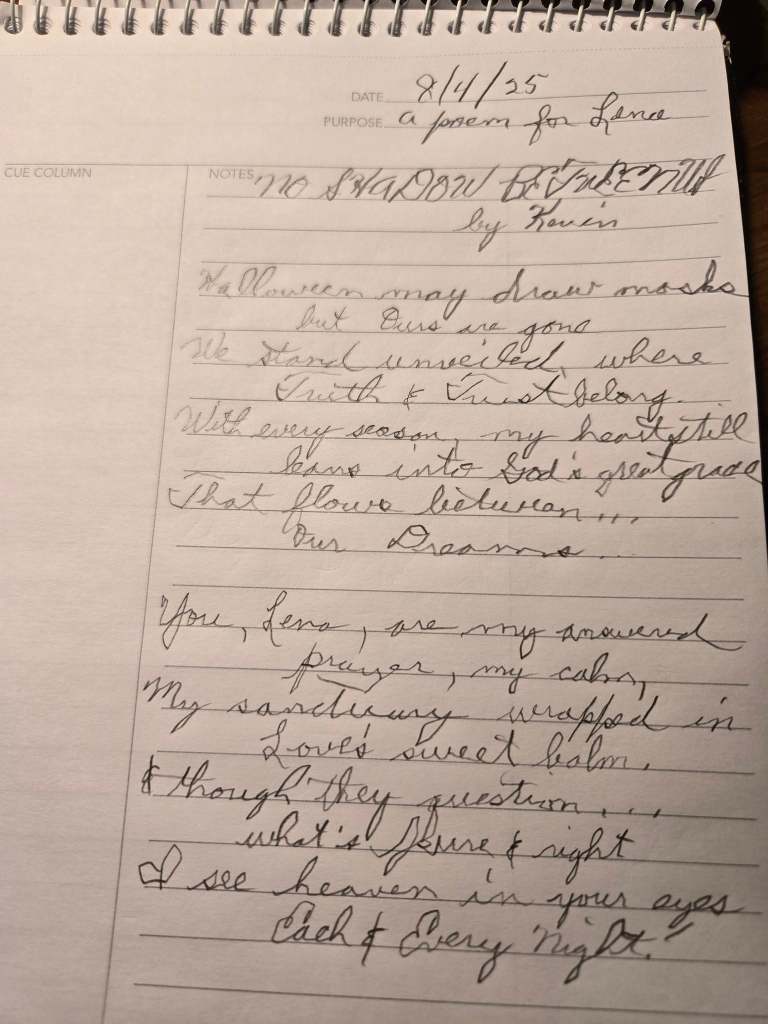 DATE 8/4/25
PURPOSE a poem for Lena
CUE COLUMN
NOTES NO SHADOW BETWEEN US
by Kevin
Halloween may draw masks
but Ours are gone
We stand unveiled, where
Truth & Trust belong.
With every season, my heart still
leans into God's great grace
That flows between...
Our Dreams...
You, Lena, are my answered
prayer, my calm,
My sanctuary wrapped in
Love's sweet balm.
& though they question....
what's & right
I see heaven in your eyes
Each & Every Night."